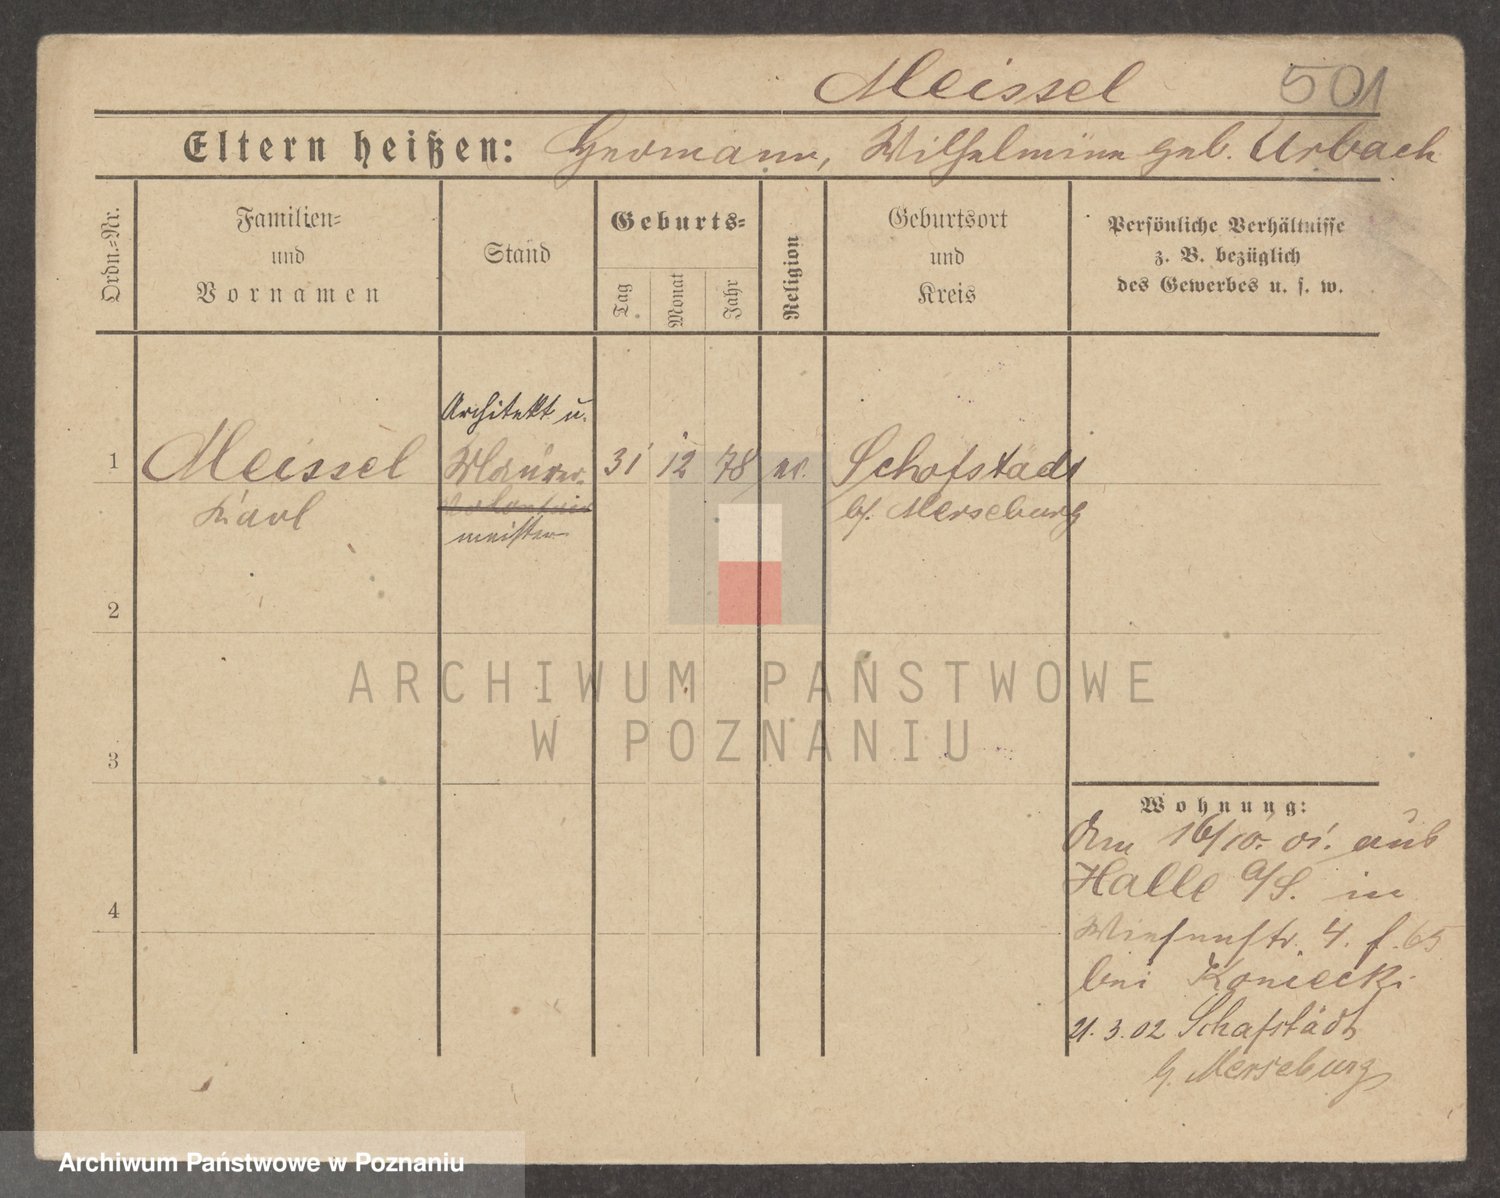 Meissel 501
Eltern heißen: Hermann, Wilhelmine geb. Urbach
Ordn.-Nr.
Familien-
und
Vornamen
Stand
Geburts-
Tag
Monat
Jahr
Religion
Geburtsort
und
Kreis
Persönliche Verhältnisse
z. B. bezüglich
des Gewerbes u. s. w.
Architekt u.
1 Meissel Maurer- 31 12 78 ev. Schafstädt
Karl b/. Merseburg
meister
2
3
4
ARCHIWUM PAŃSTWOWE
W POZNANIU
Wohnung:
Am 16/10. 01. aus
Halle a/S. in
Wiesenstr. 4. f. 65
bei Koniecki
21. 3. 02 Schafstädt
b/. Merseburg
Archiwum Państwowe w Poznaniu